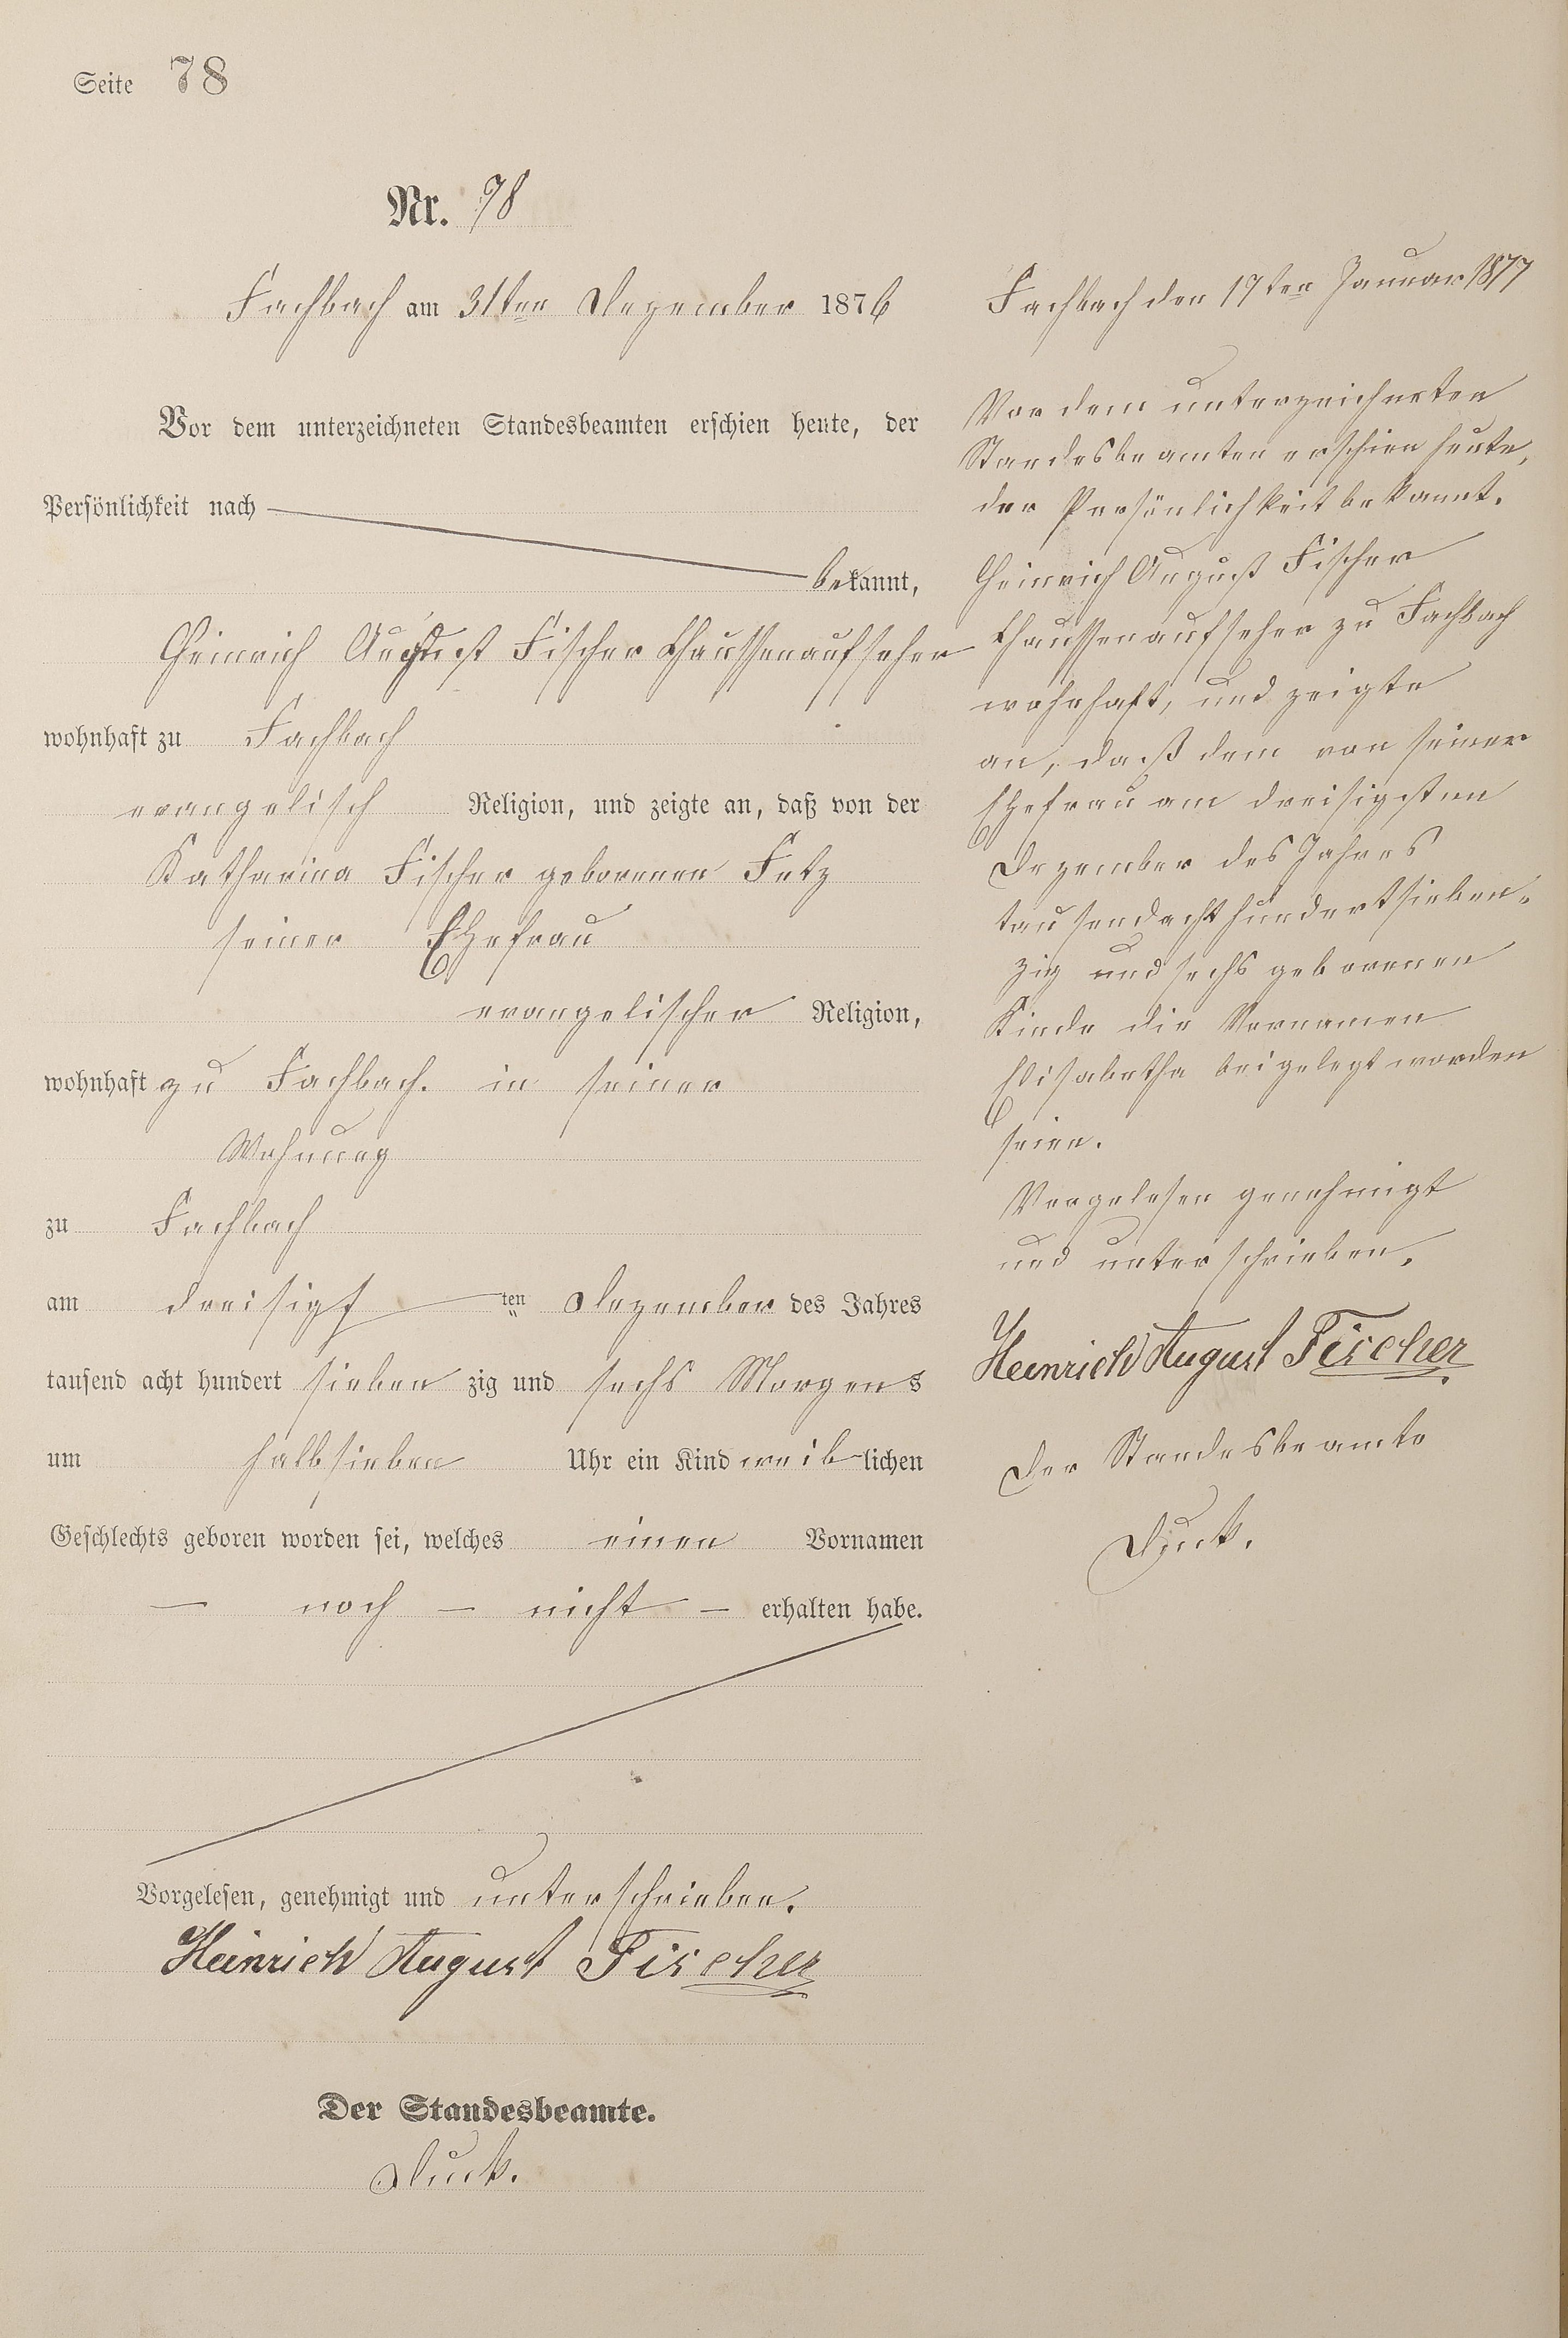 Seite 78
Nr. 78
Fachbach am 31ten Dezember 1876
Vor dem unterzeichneten Standesbeamten erschien heute, der
Persönlichkeit nach
bekannt,
Heinrich August Fischer Chaussenaufseher
wohnhaft zu Fachbach
evangelisch Religion, und zeigte an, daß von der
Katharina Fischer geborenen Fetz
seiner Ehefrau
evangelischer Religion,
wohnhaft zu Fachbach. in seiner
Wohnung
zu Fachbach
am dreisigs ten Dezember des Jahres
tausend acht hundert sieben zig und sechs Morgens
um halbsieben Uhr ein Kind weib-lichen
Geschlechts geboren worden sei, welches einen Vornamen
— noch — nicht — erhalten habe.
Vorgelesen, genehmigt und unterschrieben.
Heinrich August Fischer
Der Standesbeamte.
Duck.
Fachbach den 19ten Januar 1877
Vor dem unterzeichneten
Standesbeamten erschien heute,
der Persönlichkeit bekannt.
Heinrich August Fischer
Chaussenaufseher zu Fachbach
wohnhaft, und zeigte
an, daß dem von seiner
Ehefrau am dreisigsten
Dezember des Jahres
tausendachthundertsieben-
zig und sechs geborenen
Kinde die Vornamen
Elisabetha beigelegt worden
seien.
Vorgelesen genehmigt
und unterschrieben.
Heinrich August Fischer
Der Standesbeamte
Duck.